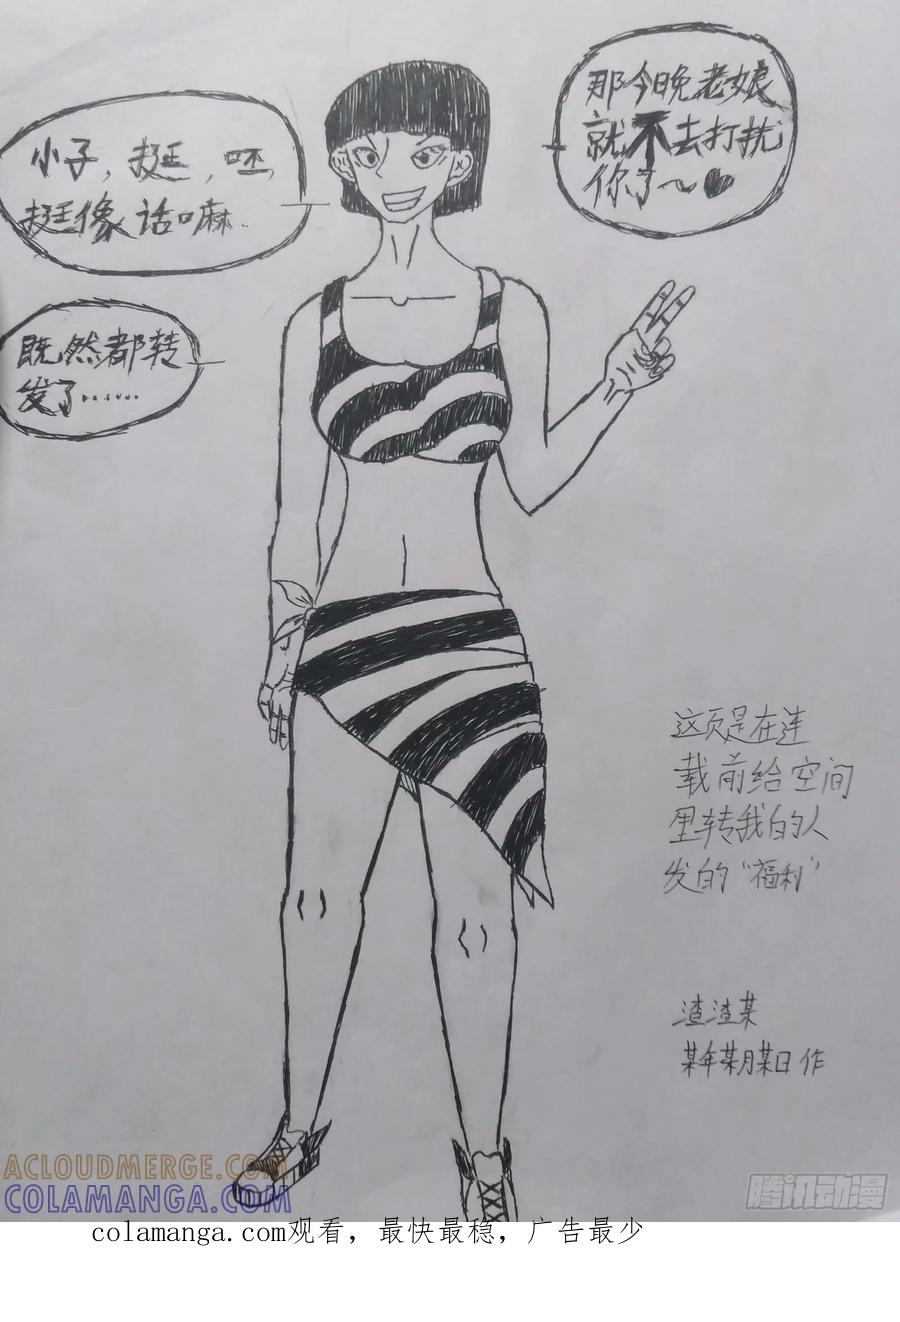 小子，挺，呸，
挺像话口麻..
既然都转
发了......
那今晚老娘
就不去打扰
你了～
这页是在连
载前给空间
里转我的人
发的“福利”
渣渣某
某年某月某日作
ACLOUDMERGE.COM
COLAMANGA.COM
腾讯动漫
colamanga.com观看，最快最稳，广告最少